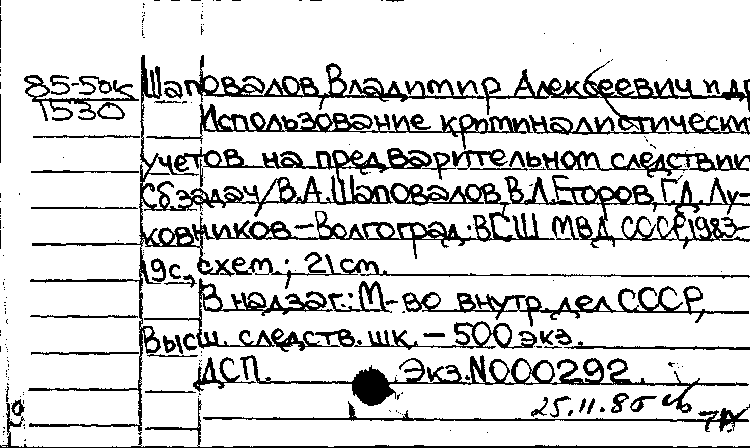 85-5ок Шаповалов, Владимир Алексеевич и др
1530
Использование криминалистически
учетов на предварительном следствии
Сб. задач/В.А.Шаповалов, В.Л.Егоров, Г.Д. Лу-
ковников.-Волгоград: ВСШ МВД СССР, 1983-
19с., схем.; 21 см.
В надзаг.: М-во внутр. дел СССР,
Высш. следств. шк. - 500 экз.
ДСП. Экз.N000292.
25.11.85